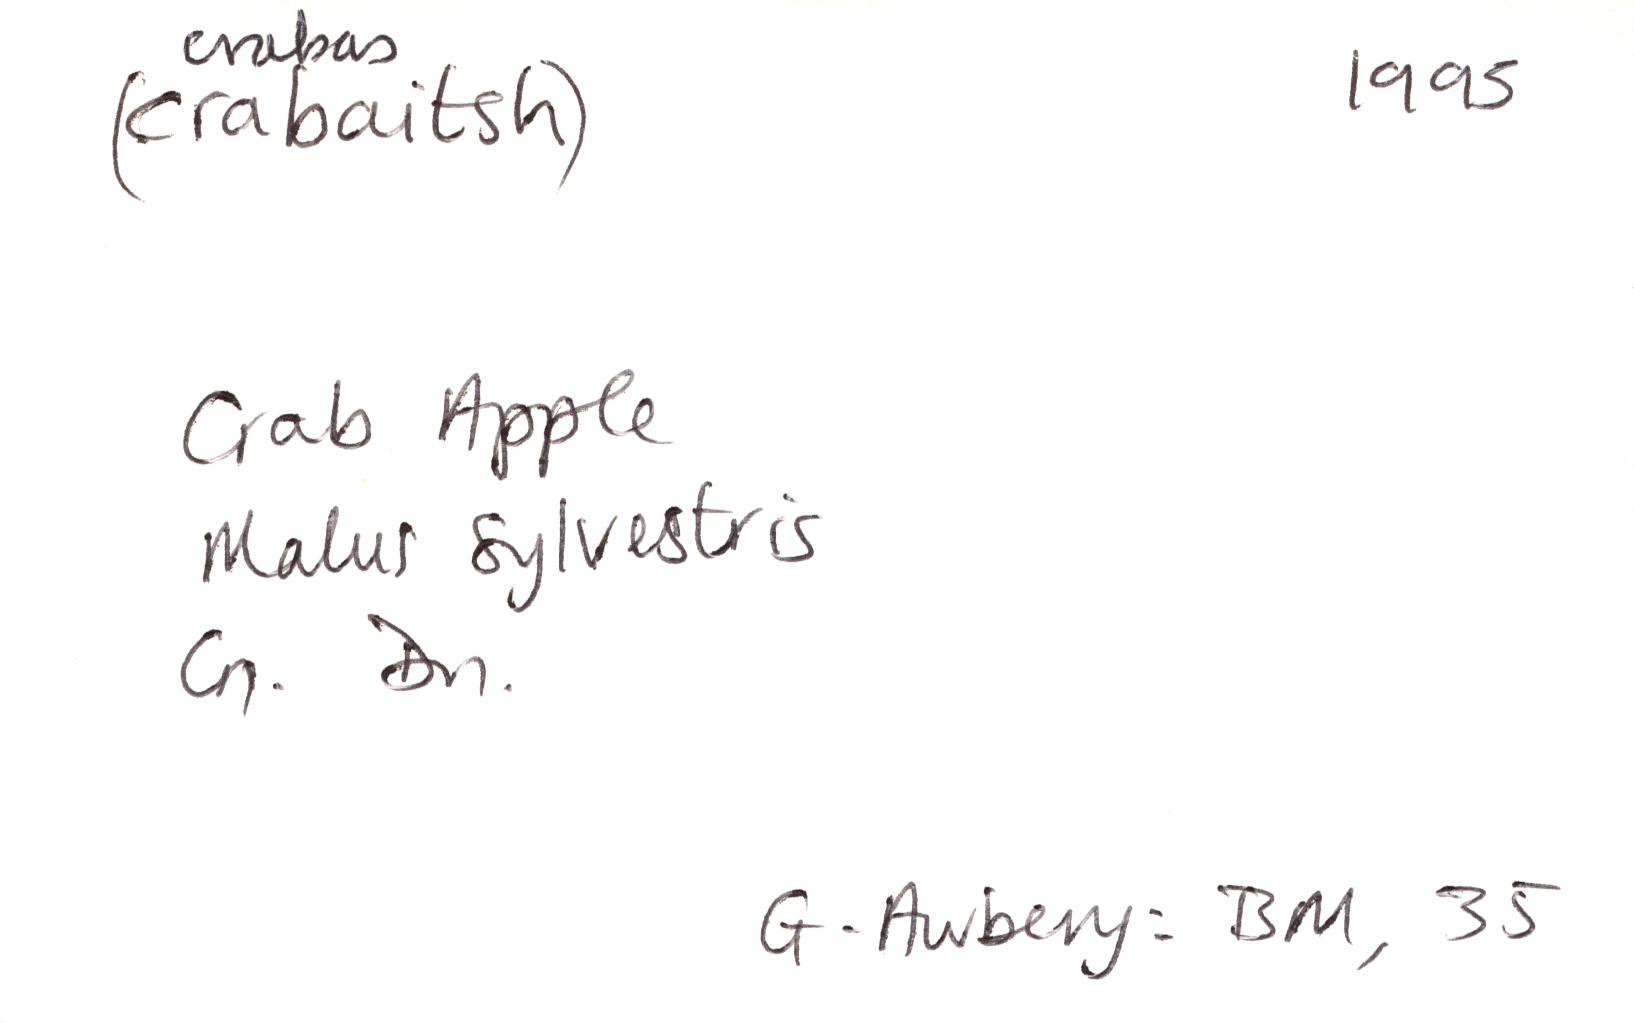 crabas
(crabaitsh)
1995
Crab Apple
Malus Sylvestris
Cn. Dn.
G. Awbery: BM, 35